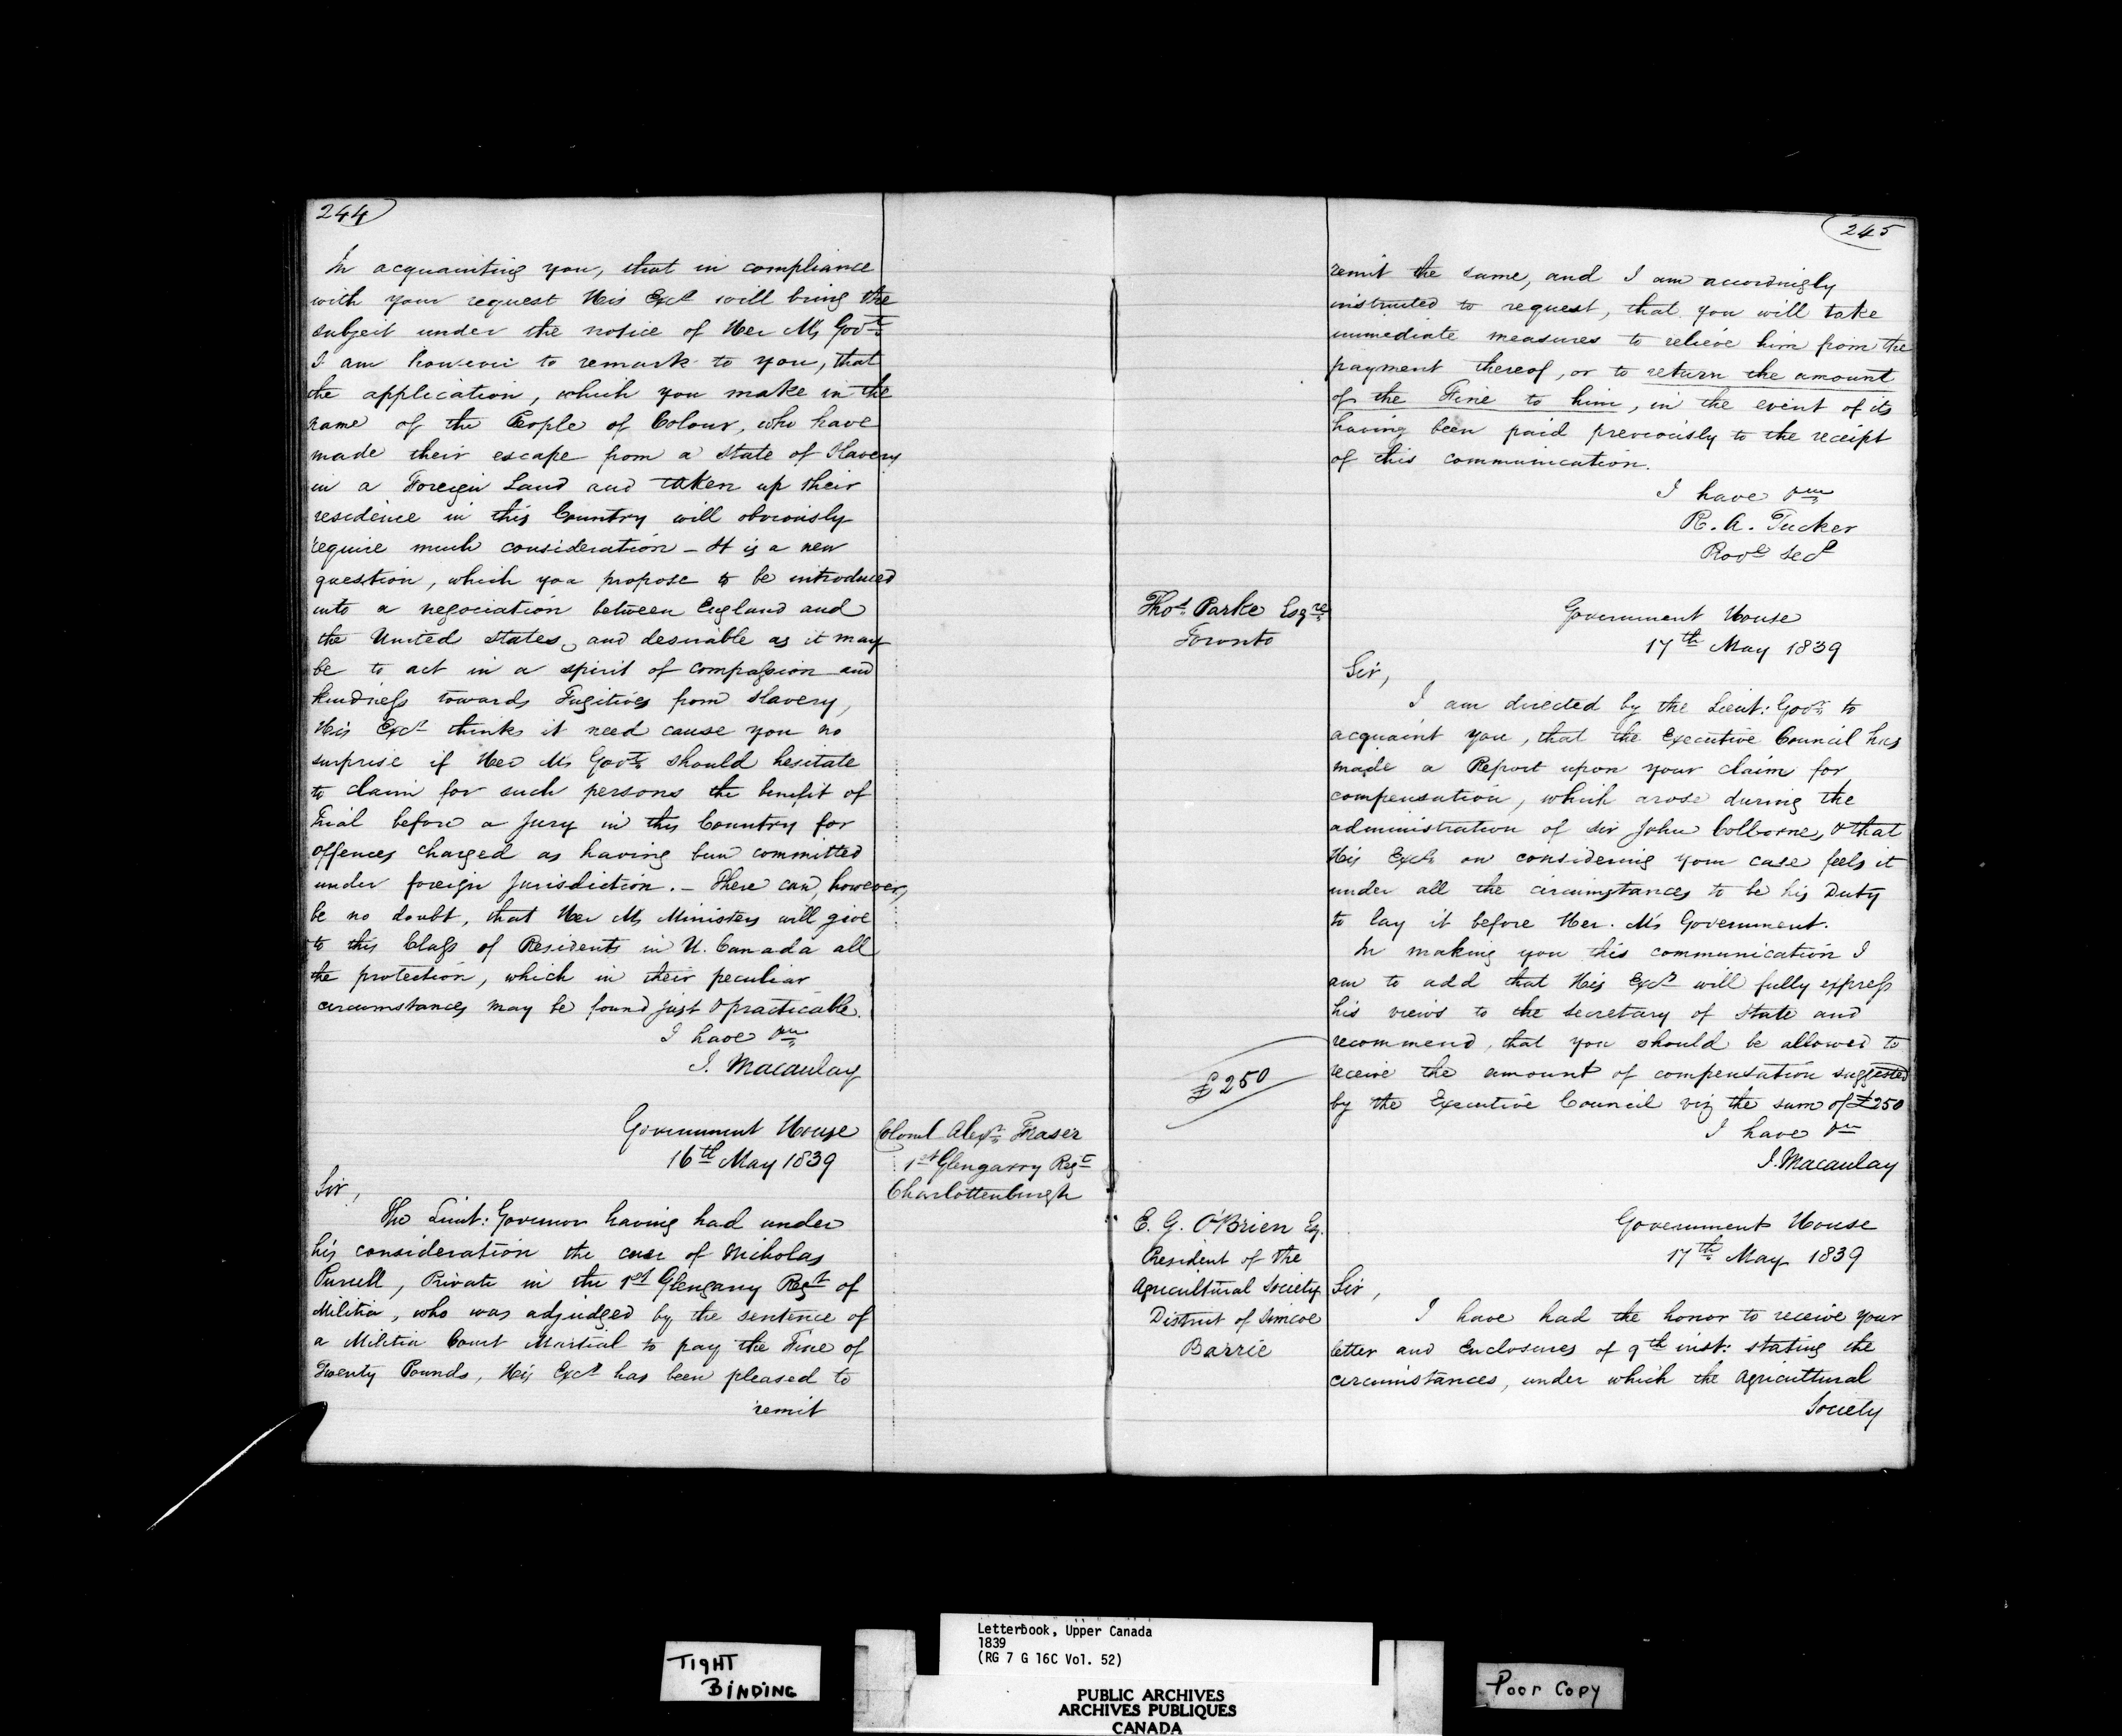 244
In acquainting you, that in compliance
with your request His Excy will bring the
subject under the notice of Her M's Govt.
I am however to remark to you, that
the application, which you make in the
name of the People of Colour, who have
made their escape from a State of Slavery
in a Foreign Land and taken up their
residence in this Country will obviously
require much consideration - It is a new
question, which you propose to be introduced
into a negociation between England and
the United States, and desirable as it may
be to act in a spirit of compassion and
kindness towards Fugitives from Slavery,
His Excy thinks it need cause you no
surprise if Her Ms Govt. should hesitate
to claim for such persons the benefit of
Trial before a Jury in this Country for
offences charged as having been committed
under foreign Jurisdiction. - There can, however,
be no doubt, that Her Ms Ministers will give
to this Class of Residents in U. Canada all
the protection, which in their peculiar
circumstances may be found just & practicable.
I have &c
J. Macaulay
Government House
16th May 1839
Colonel Alexr. Fraser
1st Glengarry Regt
Charlottenburgh
Sir,
The Lieut: Governor having had under
his consideration the case of Nicholas
Purcell, Private in the 1st Glengarry Regt of
Militia, who was adjudged by the sentence of
a Militia Court Martial to pay the Fine of
Twenty Pounds, His Excy has been pleased to
remit
245
remit the same, and I am accordingly
instructed to request, that you will take
immediate measures to relieve him from the
payment thereof, or to return the amount
of the Fine to him, in the event of its
having been paid previously to the receipt
of this communication.
I have &c
R. A. Tucker
Provl Secy
Thos. Parke Esqre
Toronto
Government House
17th May 1839
Sir,
I am directed by the Lieut: Govr. to
acquaint you, that the Executive Council has
made a Report upon your claim for
compensation, which arose during the
administration of Sir John Colborne, & that
His Excy on considering your case feels it
under all the circumstances to be his Duty
to lay it before Her. M's Government.
In making you this communication I
am to add that His Excy will fully express
his views to the Secretary of State and
recommend, that you should be allowed to
receive the amount of compensation suggested
by the Executive Council viz the sum of £250
£250
I have &c
J. Macaulay
E. G. O'Brien Esq.
President of the
Agricultural Society
District of Simcoe
Barrie
Government House
17th May 1839
Sir,
I have had the honor to receive your
letter and Enclosures of 9th inst: stating the
circumstances, under which the Agricultural
Society
TIGHT
BINDING
Letterbook, Upper Canada
1839
(RG 7 G 16C Vol. 52)
PUBLIC ARCHIVES
ARCHIVES PUBLIQUES
CANADA
Poor Copy